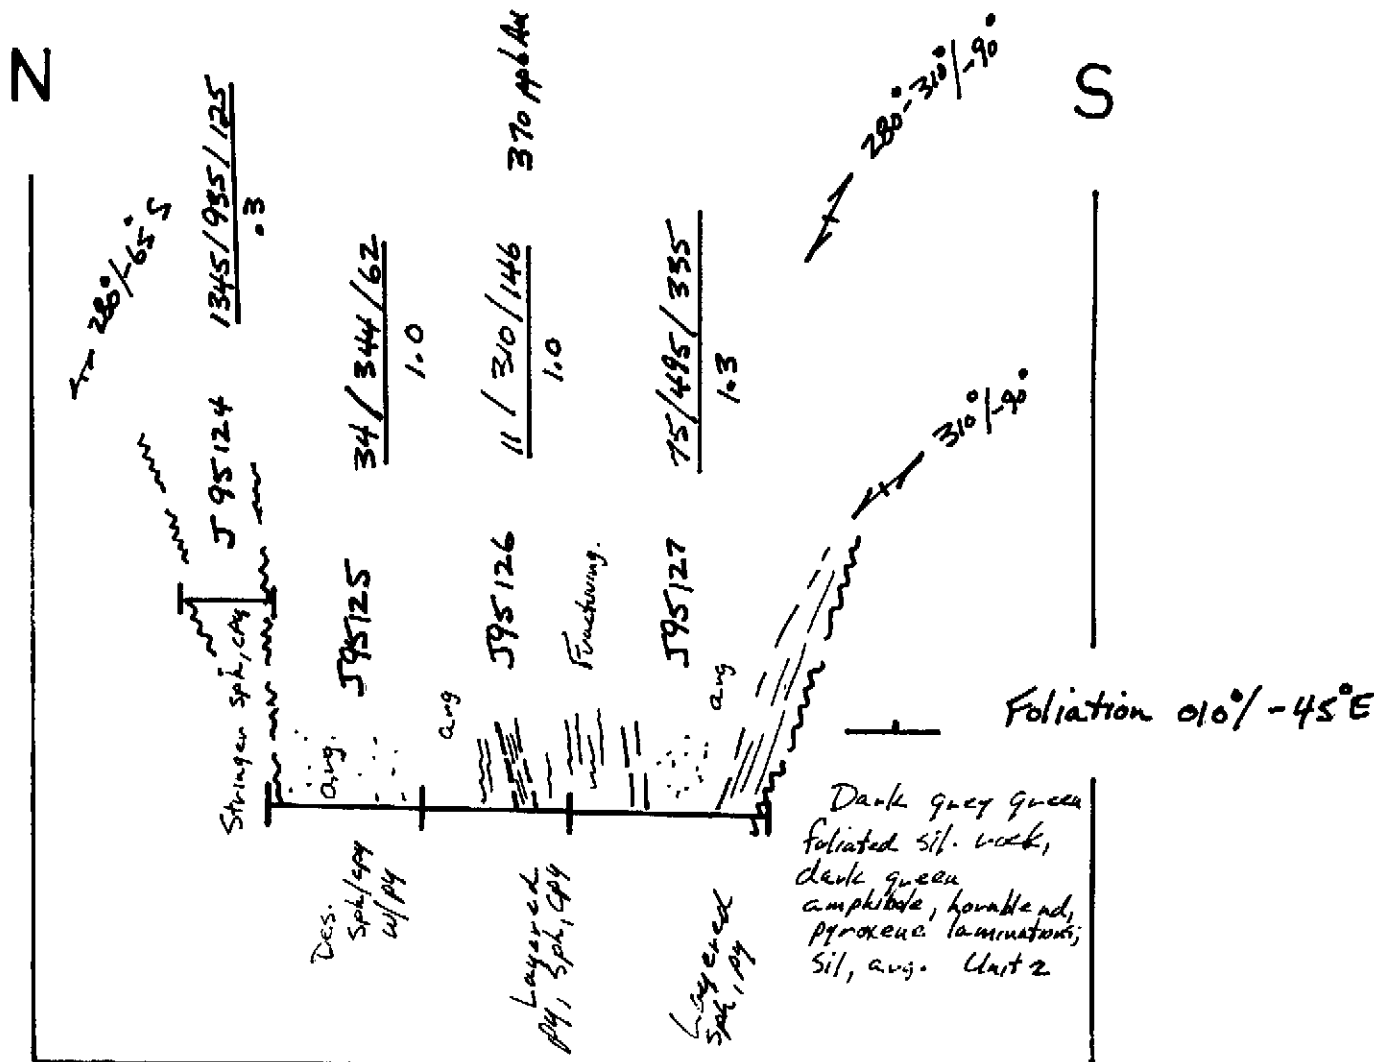 N
S
280°/-65°S
J95124 1345/935/125
.3
J95125 34/344/62
1.0
J95126 11/310/146 370 ppb Au
1.0
J95127 75/495/335
1.3
280°-310°/-90°
310°/-90°
Stringer Sph, cpy
arg.
arg
Fracturing.
arg
Des.
Sph/cpy
w/py
Layered
py, Sph, cpy
Layered
Sph, py
Foliation 010°/-45°E
Dark grey green
foliated sil. rock,
dark green
amphibole, hornblend,
pyroxene laminations;
sil, arg. Unit 2